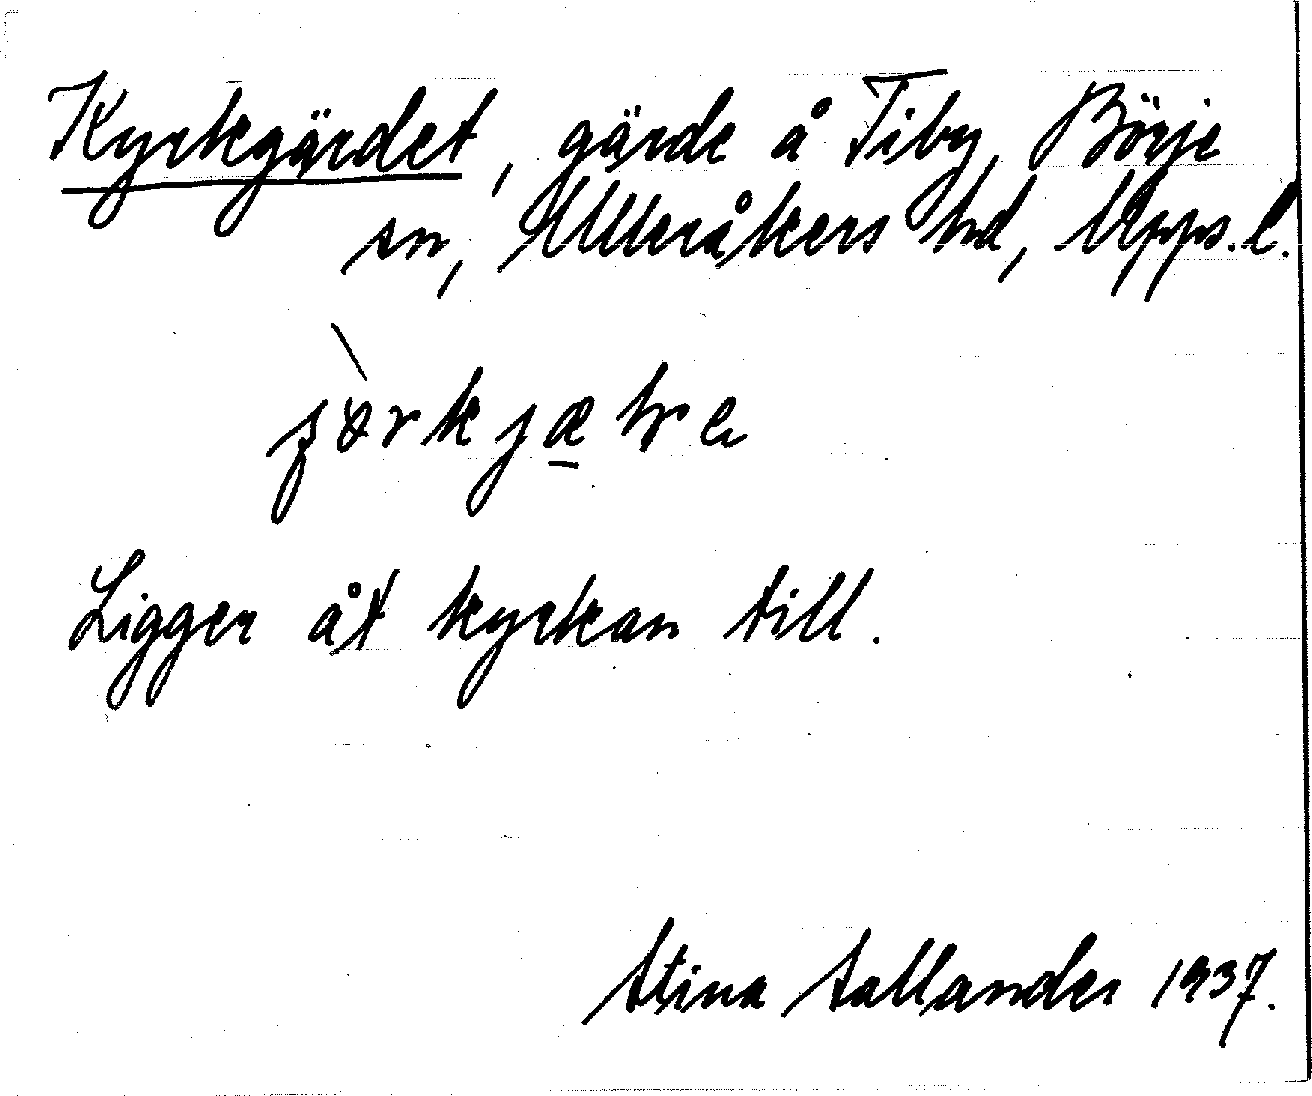 Kyrkgärdet, gärde å Tiby, Börje
sn, Ulleråkers hd, Upps. l.
Ligger åt kyrkan till.
Stina Sallander 1937.